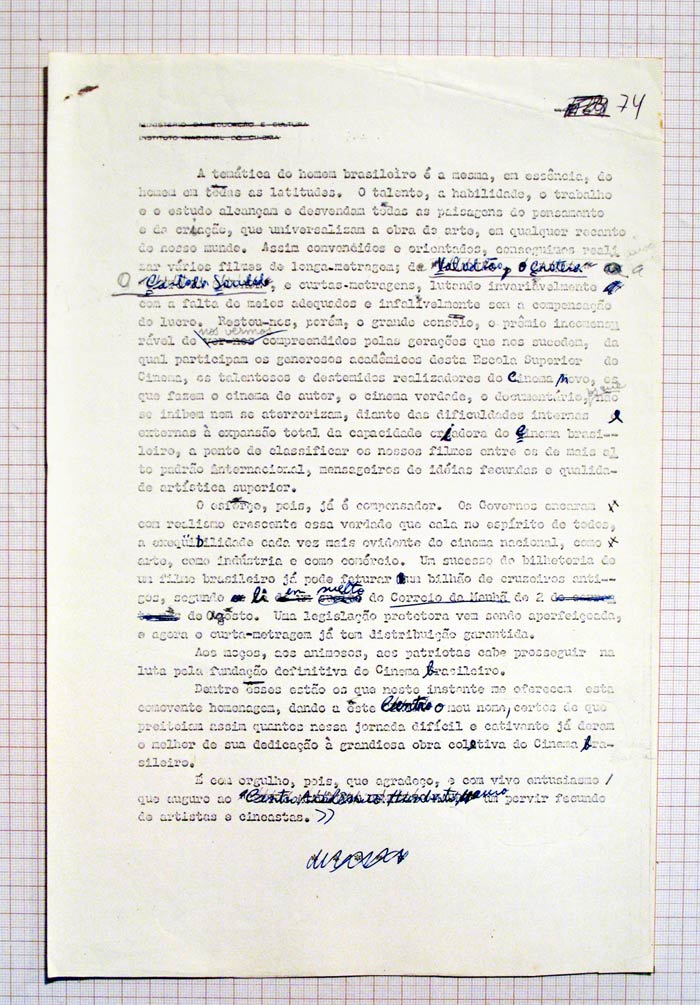 74
MINISTÉRIO DA EDUCAÇÃO E CULTURA
INSTITUTO NACIONAL DO CINEMA
A temática do homem brasileiro é a mesma, em essência, do
homem em todas as latitudes. O talento, a habilidade, o trabalho
e o estudo alcançam e desvendam todas as paisagens do pensamento
e da criação, que universalizam a obra de arte, em qualquer recanto
do nosso mundo. Assim convencidos e orientados, conseguimos reali
zar vários filmes de longa-metragem; de
O
, e curtas-metragens, lutando invariàvelmente
com a falta de meios adequados e infalìvelmente sem a compensação
do lucro. Restou-nos, porém, o grande consolo, o prêmio incomensu
nos vermos
rável de ver-nos compreendidos pelas gerações que nos sucedem, da
qual participam os generosos acadêmicos desta Escola Superior de
Cinema, os talentosos e destemidos realizadores do Cinema Novo, os
que fazem o cinema de autor, o cinema verdade, o documentário, não
se inibem nem se aterrorizam, diante das dificuldades internas e
externas à expansão total da capacidade criadora do Cinema brasi-
leiro, a ponto de classificar os nossos filmes entre os de mais al
to padrão internacional, mensageiros de idéias fecundas e qualida-
de artística superior.
O esforço, pois, já é compensador. Os Governos encaram
com realismo crescente essa verdade que cala no espírito de todos,
a exeqüibilidade cada vez mais evidente do cinema nacional, como
arte, como indústria e como comércio. Um sucesso de bilheteria de
um filme brasileiro já pode faturar um bilhão de cruzeiros anti-
gos, segundo li em suelto do Correio da Manhã de 2
de Agosto. Uma legislação protetora vem sendo aperfeiçoada,
e agora o curta-metragem já tem distribuição garantida.
Aos moços, aos animosos, aos patriotas cabe prosseguir na
luta pela fundação definitiva do Cinema brasileiro.
Dentre êsses estão os que neste instante me oferecem esta
comovente homenagem, dando a êste Centro o meu nome, certos de que
preiteiam assim quantos nessa jornada difícil e cativante já deram
o melhor de sua dedicação à grandiosa obra coletiva do Cinema bra-
sileiro.
É com orgulho, pois, que agradeço, e com vivo entusiasmo
que auguro ao "Centro Acadêmico Humberto Mauro" um porvir fecundo
de artistas e cineastas. »